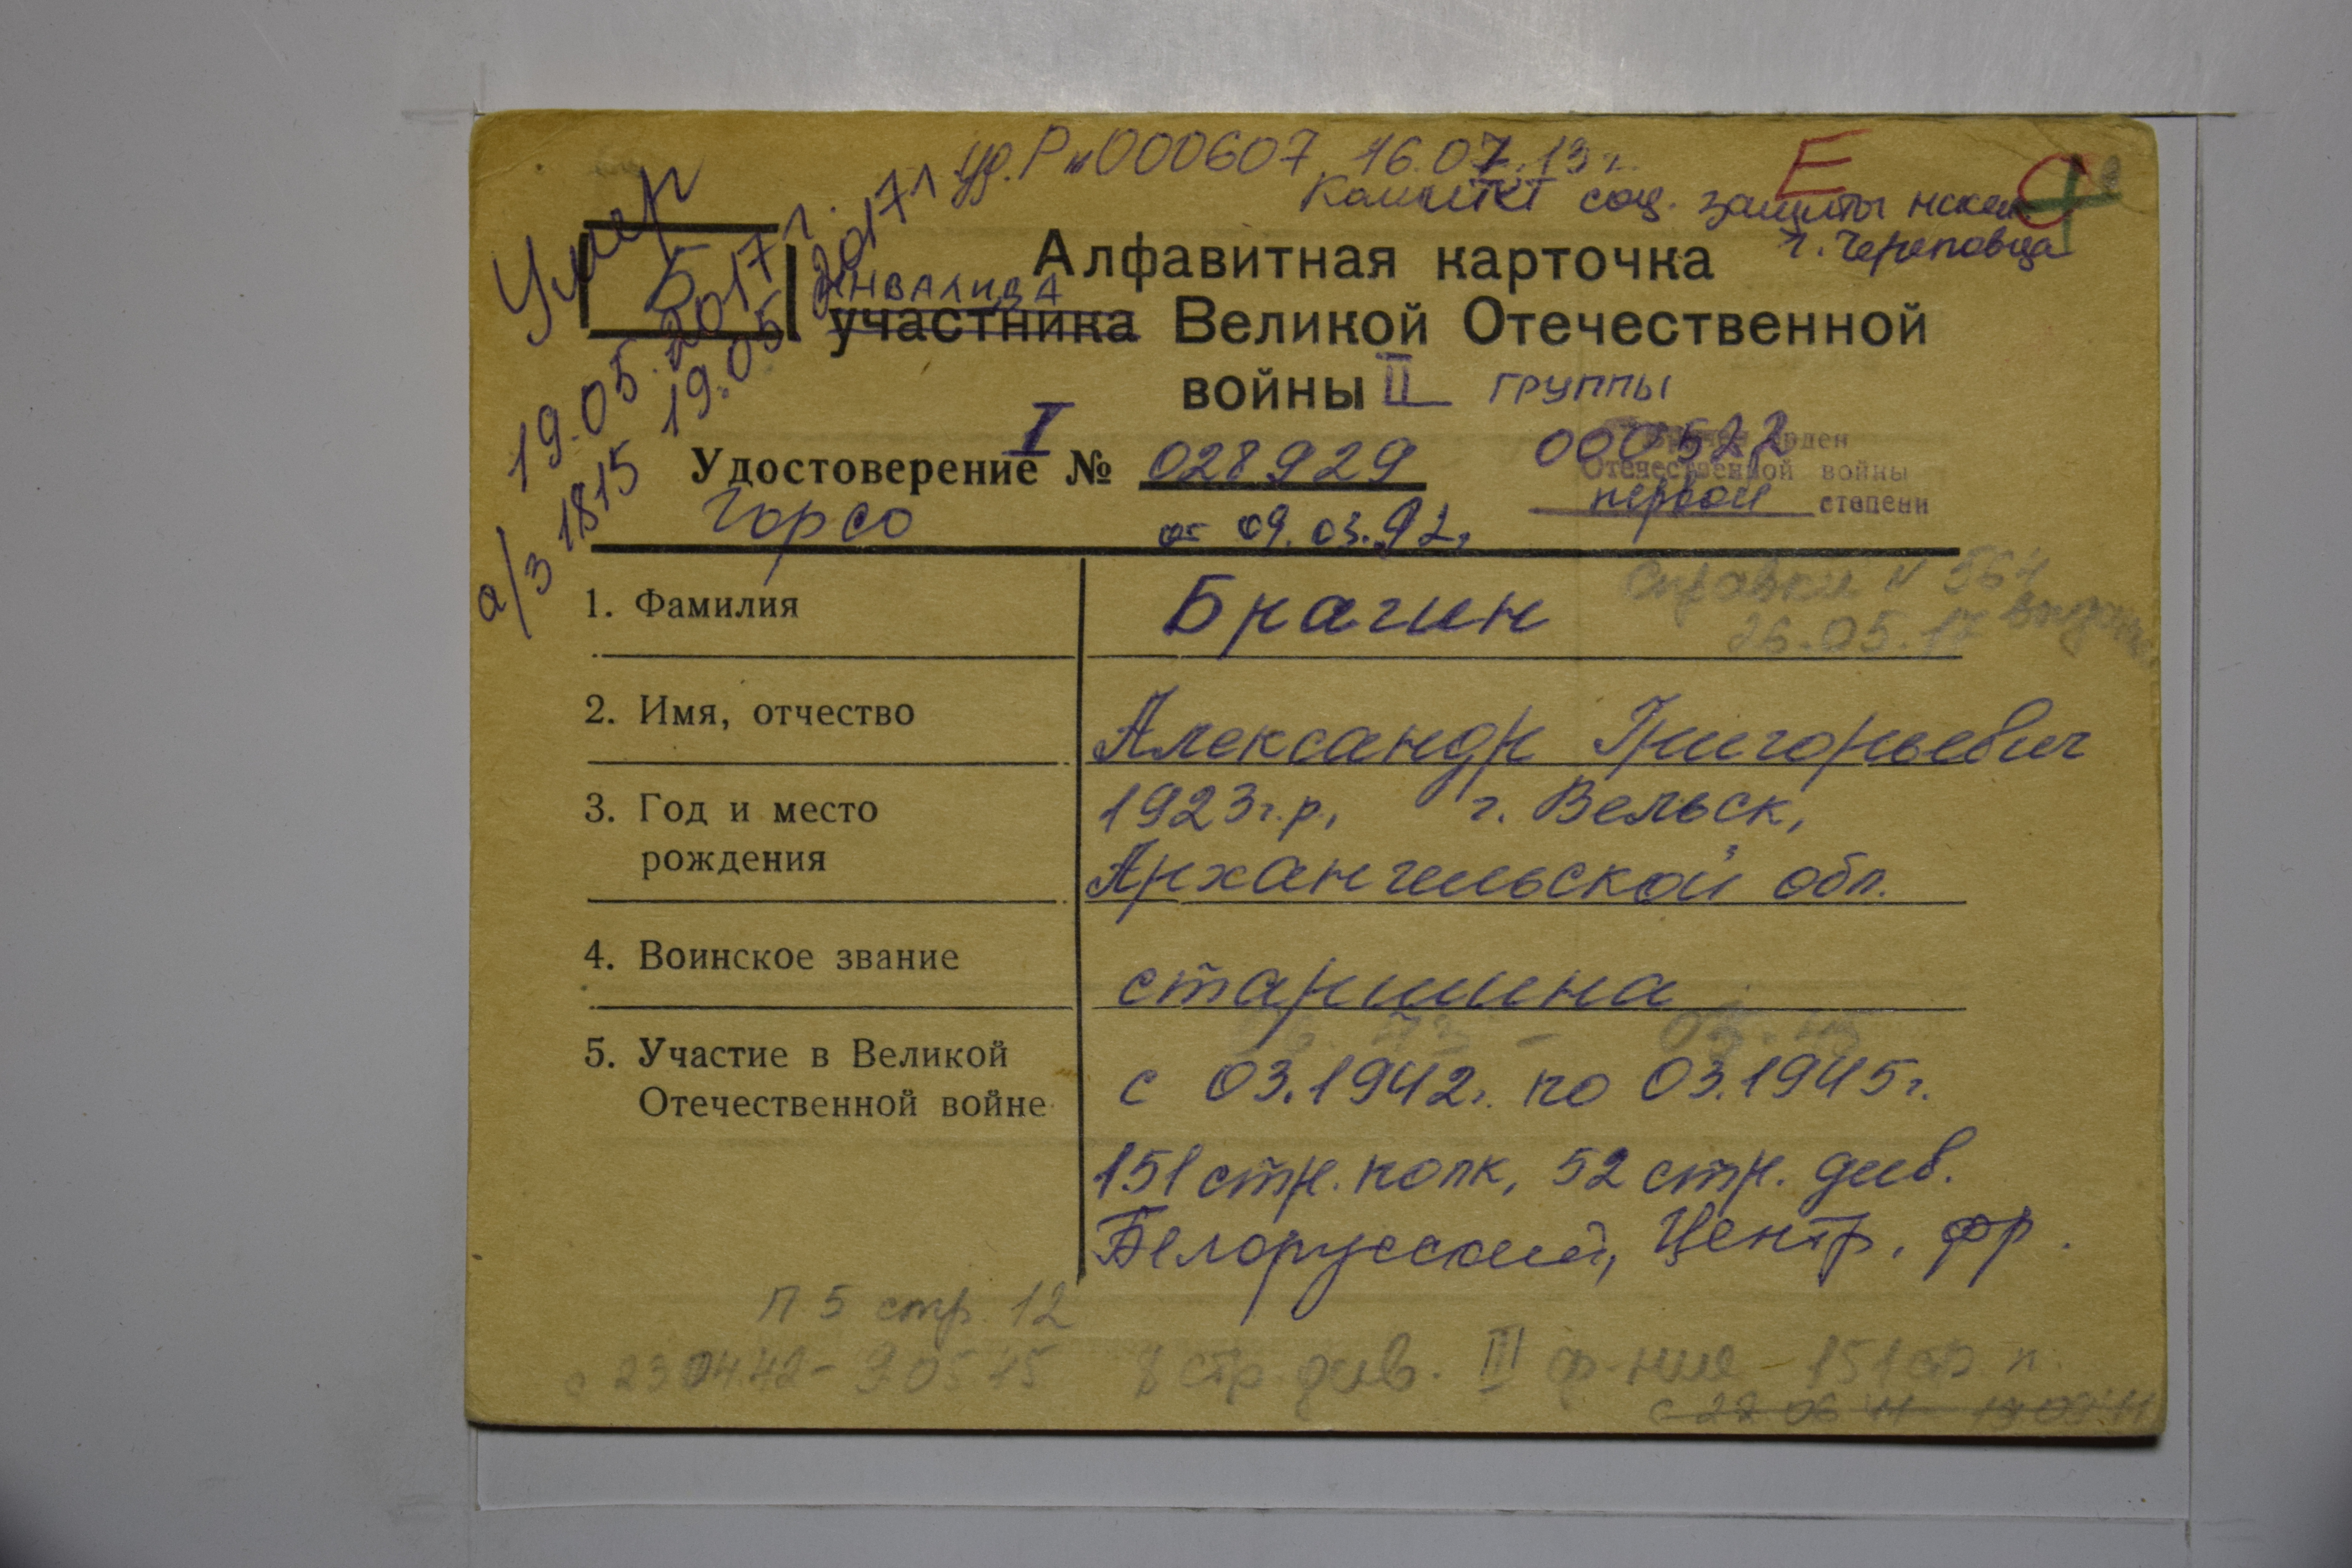 уд. Рн 000607 16.07.13 г.
Е
Комитет соц. защиты насел.
г. Череповца
Умер
19.05.2017 г.
а/з 1815 19.05 2017 г
Б
Алфавитная карточка
ИНВАЛИДА
участника Великой Отечественной
войны II группы
I
Удостоверение № 028929
000522
орден
Отечественной войны
первой степени
Горсо
от 09.03.92г.
1. Фамилия
Брагин
Справка N
26.05.17 выдана
2. Имя, отчество
Александр Григорьевич
3. Год и место
рождения
1923г.р., г. Вельск,
Архангельской обл.
4. Воинское звание
старшина
5. Участие в Великой
Отечественной войне
с 03.1942г. по 03.1945г.
151 стр. полк, 52 стр. див.
Белорусский, Центр. фр.
П 5 стр. 12
с 23 04 42 - 9 05 45 8 стр. див. III ф-ние - 151 сп